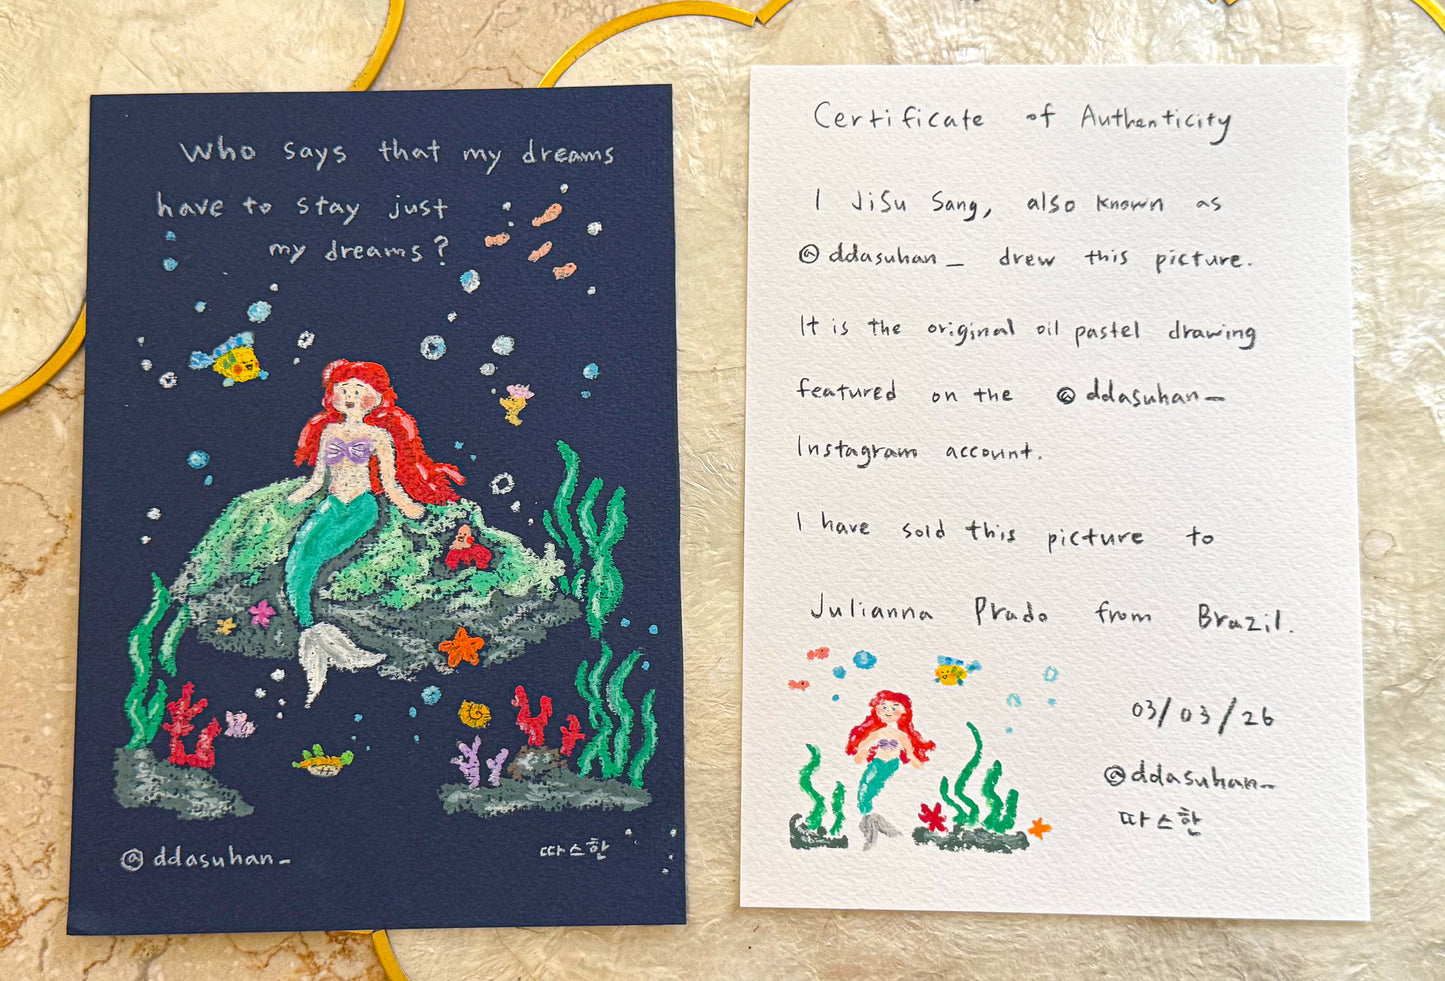 Who says that my dreams
have to stay just
my dreams?
@ddasuhan_
따스한
Certificate of Authenticity
I JiSu Sang, also known as
@ddasuhan_ drew this picture.
It is the original oil pastel drawing
featured on the @ddasuhan_
Instagram account.
I have sold this picture to
Julianna Prado from Brazil.
03/03/26
@ddasuhan_
따스한